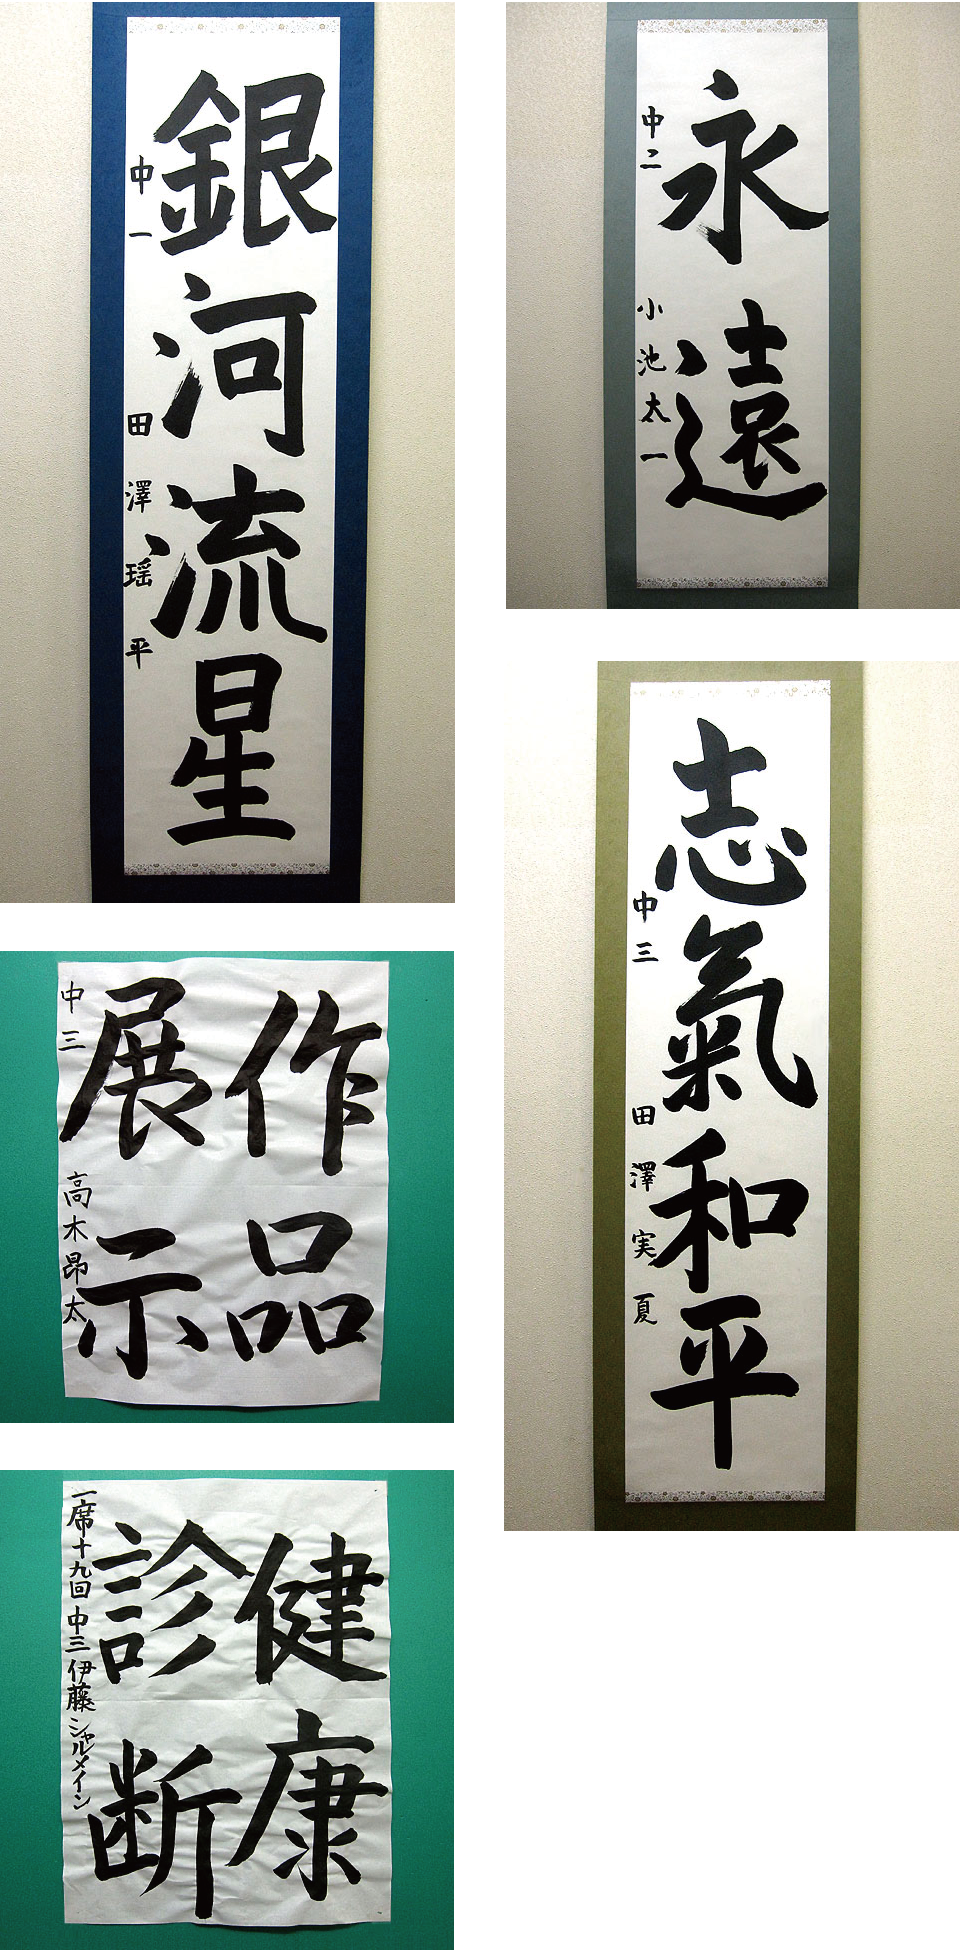 銀河流星
中一 田澤瑶平
永遠
中二 小池太一
志氣和平
中三 田澤実夏
作品
展示
中三 高木昂太
健康
診断
一席十九回中三伊藤シャルメイン